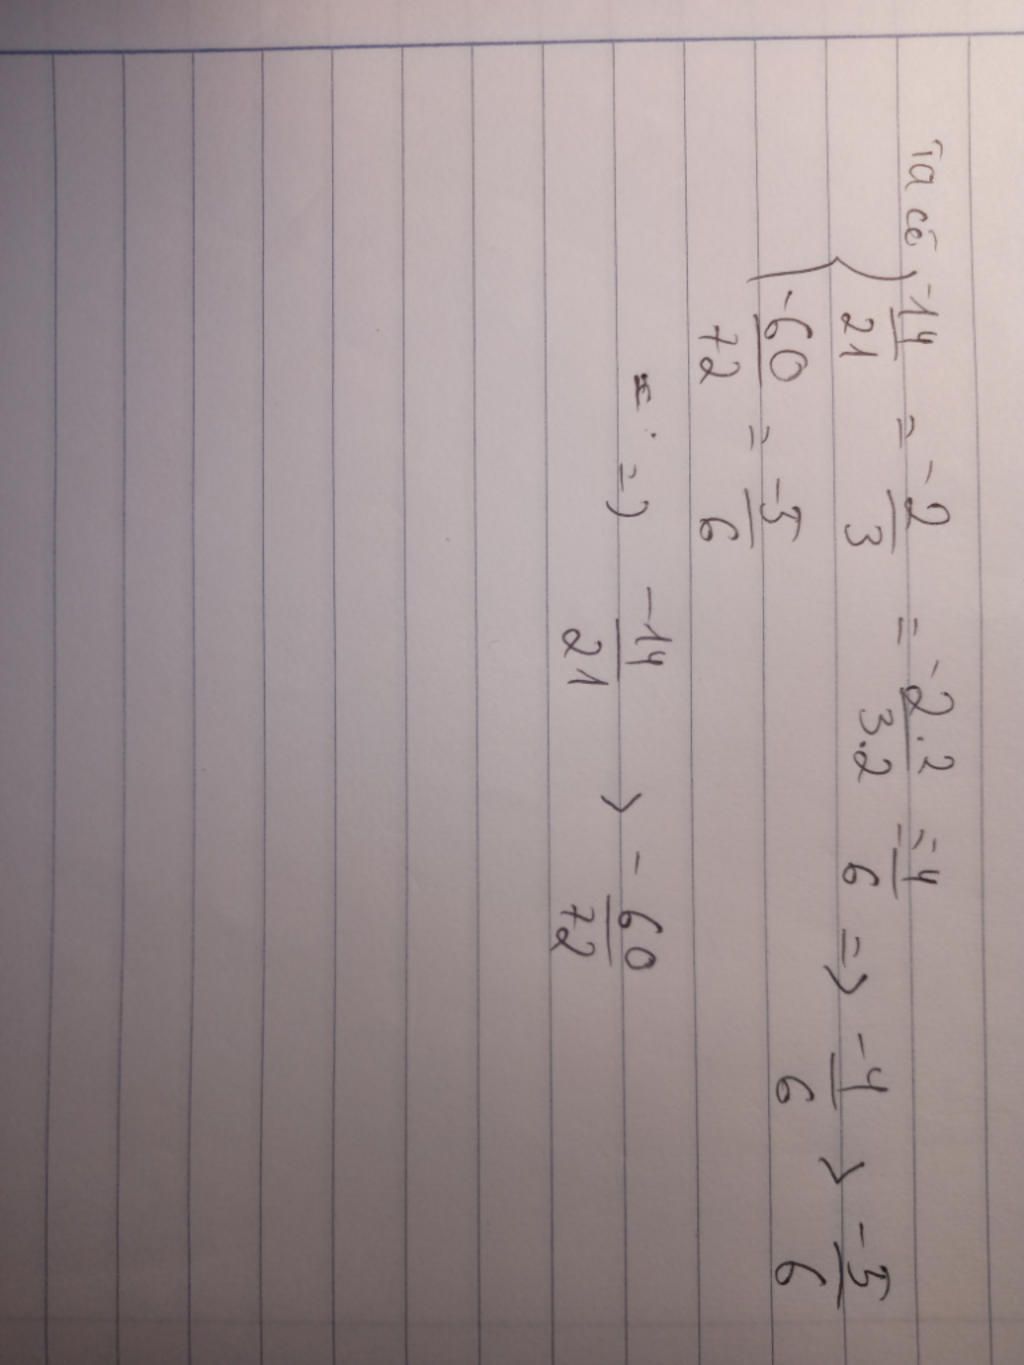 Ta có { -14/21 = -2/3 = -2.2/3.2 = -4/6 => -4/6 > -5/6
-60/72 = -5/6
=> -14/21 > -60/72